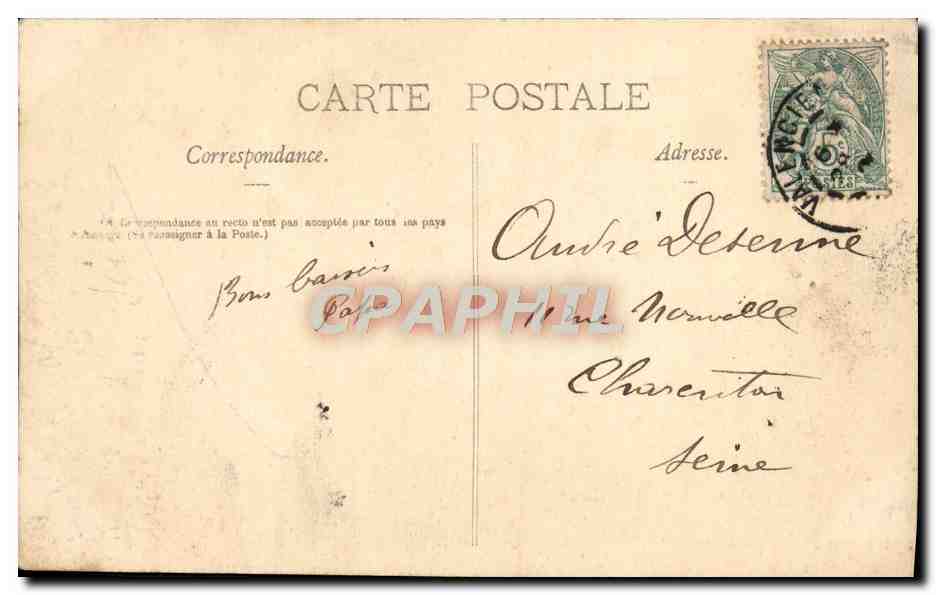 CARTE POSTALE
Correspondance.
Adresse.
La Correspondance au recto n'est pas acceptée par tous les pays
(Se renseigner à la Poste.)
Bons baisers
Papa
André Desenne
11 rue Nouvelle
Charenton
Seine
VALENCIE
5c
POSTES
CPAPHIL